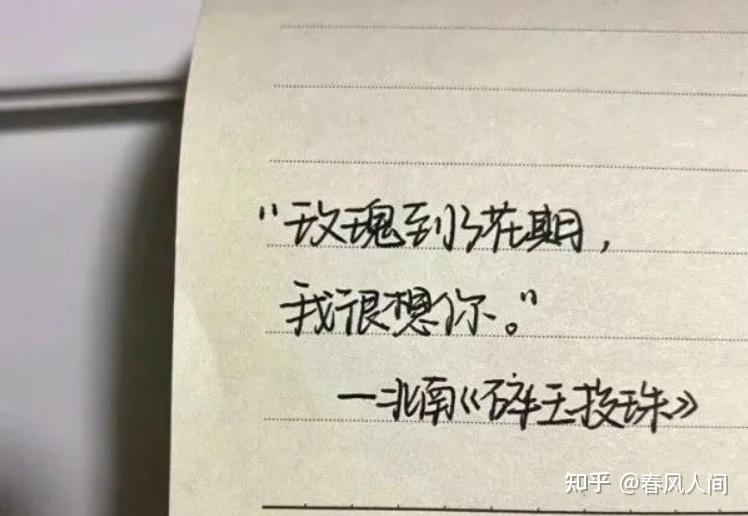 “玫瑰到了花期，
我很想你。”
—北南《碎玉投珠》
知乎 @春风人间